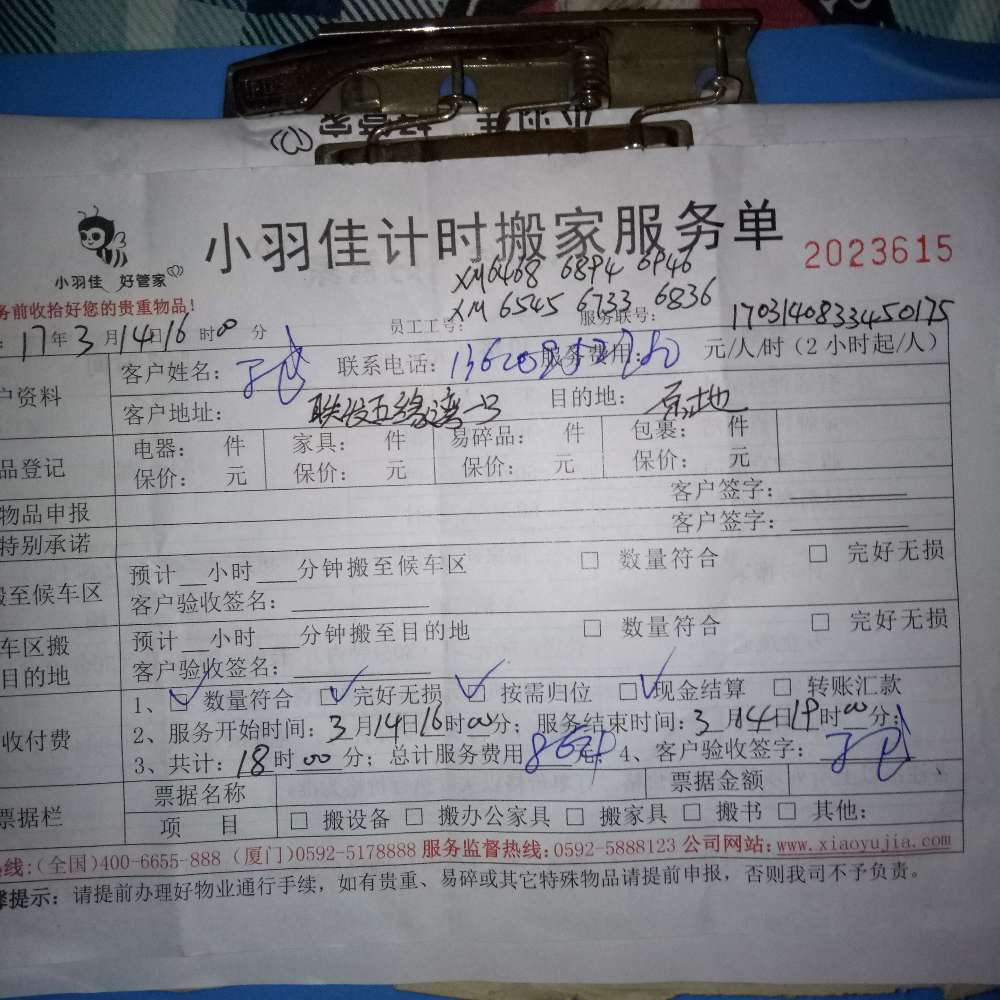 小羽佳 好管家
小羽佳计时搬家服务单
2023615
小羽佳 好管家
务前收拾好您的贵重物品!
XM6468 6894 6946
XM 6545 6733 6836
: 17年3月14日16时00分 员工工号: 服务联号: 1703140833450175
户资料 客户姓名: 联系电话: 服务费用: 元/人/时(2小时起/人)
客户地址: 联发五缘湾一号 目的地: 原地
品登记 电器: 件 家具: 件 易碎品: 件 包裹: 件
保价: 元 保价: 元 保价: 元 保价: 元
物品申报 客户签字:
特别承诺 客户签字:
搬至候车区 预计__小时___分钟搬至候车区 □ 数量符合 □ 完好无损
客户验收签名:
车区搬 预计__小时___分钟搬至目的地 □ 数量符合 □ 完好无损
目的地 客户验收签名:
1、☑ 数量符合 ☑ 完好无损 ☑ 按需归位 ☑ 现金结算 □ 转账汇款
收付费 2、服务开始时间: 3月14日16时00分; 服务结束时间: 3月14日19时00分;
3、共计: 18时00分; 总计服务费用 元; 4、客户验收签字:
票据栏 票据名称 票据金额
项 目 □ 搬设备 □ 搬办公家具 □ 搬家具 □ 搬书 □ 其他:
线:(全国)400-6655-888 (厦门)0592-5178888 服务监督热线:0592-5888123 公司网站:www.xiaoyujia.com
提示: 请提前办理好物业通行手续,如有贵重、易碎或其它特殊物品请提前申报,否则我司不予负责。